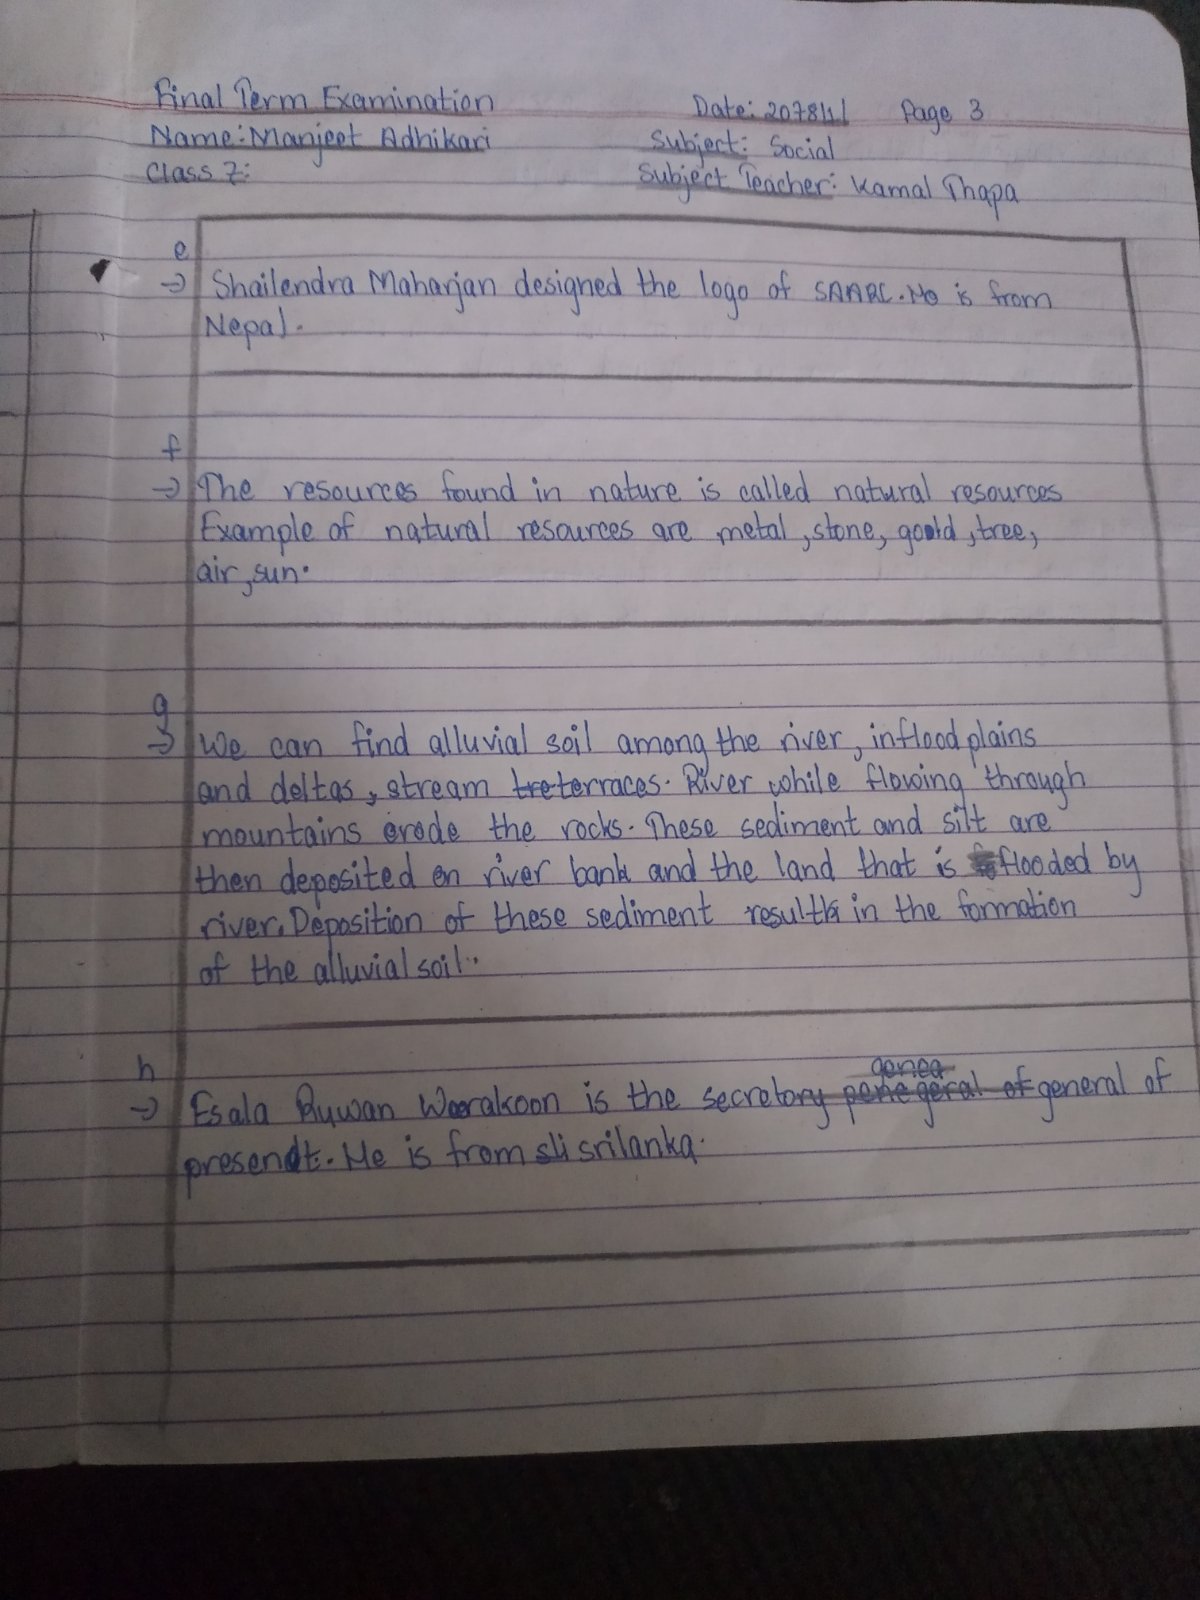 Final Term Examination
Date: 2078/1/1 Page 3
Name: Manjeet Adhikari
Subject: Social
Class 7:
Subject Teacher: Kamal Thapa
e
→ Shailendra Maharjan designed the logo of SAARC. He is from
Nepal.
f
→ The resources found in nature is called natural resources
Example of natural resources are metal, stone, gold, tree,
air, sun.
g
→ We can find alluvial soil among the river, in flood plains
and deltas, stream terraces. River while flowing through
mountains erode the rocks. These sediment and silt are
then deposited on river bank and the land that is flooded by
river. Deposition of these sediment results in the formation
of the alluvial soil..
h
→ Esala Ruwan Weerakoon is the secretory general of
present. He is from srilanka.